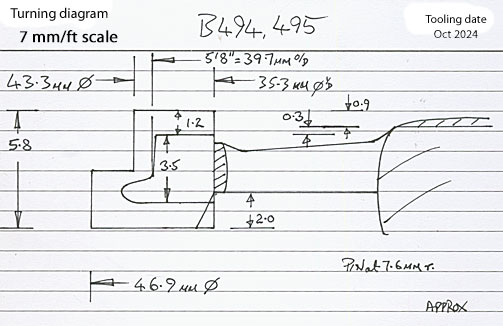 Turning diagram
7 mm/ft scale
B494, 495
Tooling date
Oct 2024
5'8" = 39.7mm o/D
43.3mm Ø
35.3mm Ø
0.9
0.3
1.2
5.8
3.5
2.0
46.9 mm Ø
P/N at 7.6mm r.
APPROX